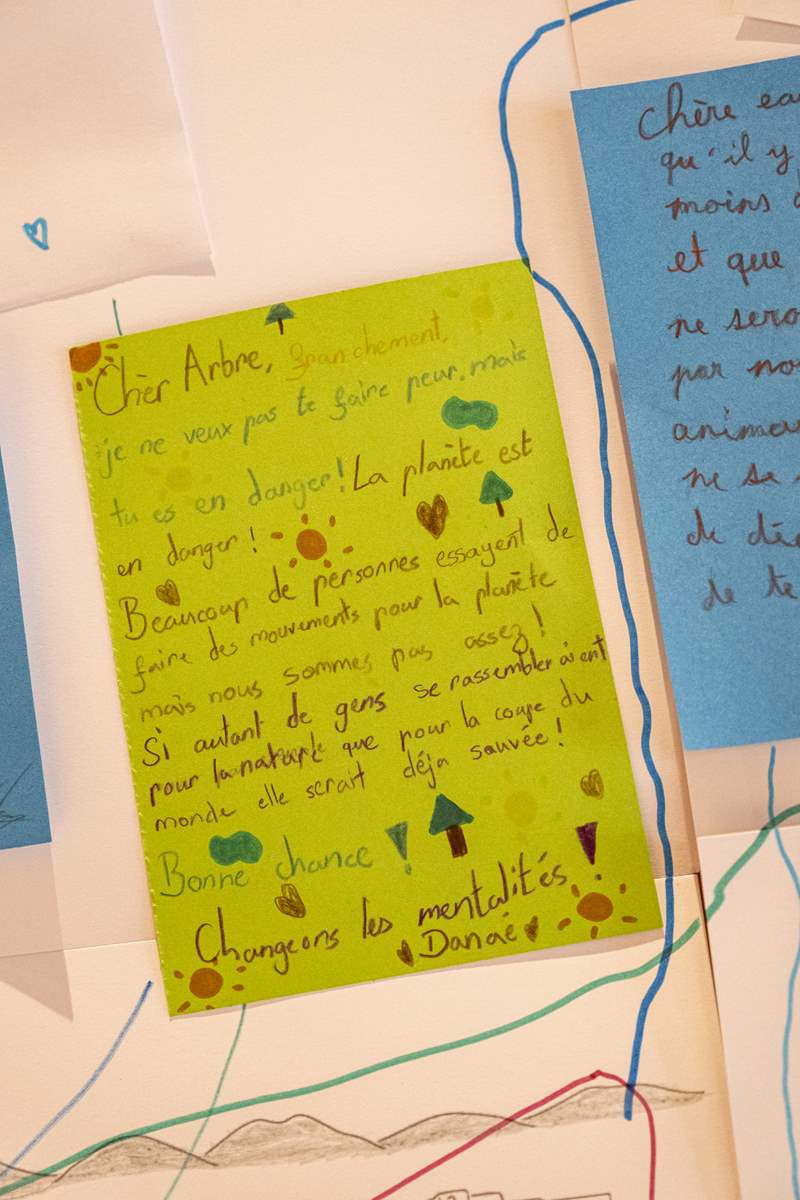 Chèr Arbre, franchement,
je ne veux pas te faire peur, mais
tu es en danger! La planète est
en danger!
Beaucoup de personnes essayent de
faire des mouvements pour la planète
mais nous sommes pas assez!
Si autant de gens se rassemblaient
pour la nature que pour la coupe du
monde elle serait déja sauvée!
Bonne chance!
Changeons les mentalités!
Danaé
Chère eau
qu'il y
moins
et que
ne sero
par no
animau
ne se
de
de te